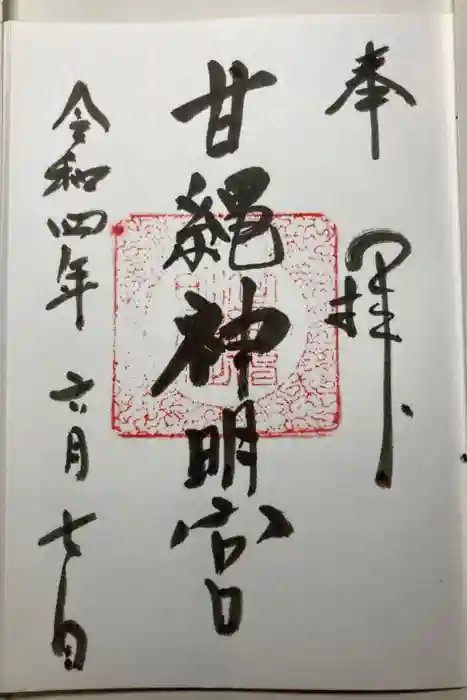 奉拝
甘縄神明宮
令和四年六月七日